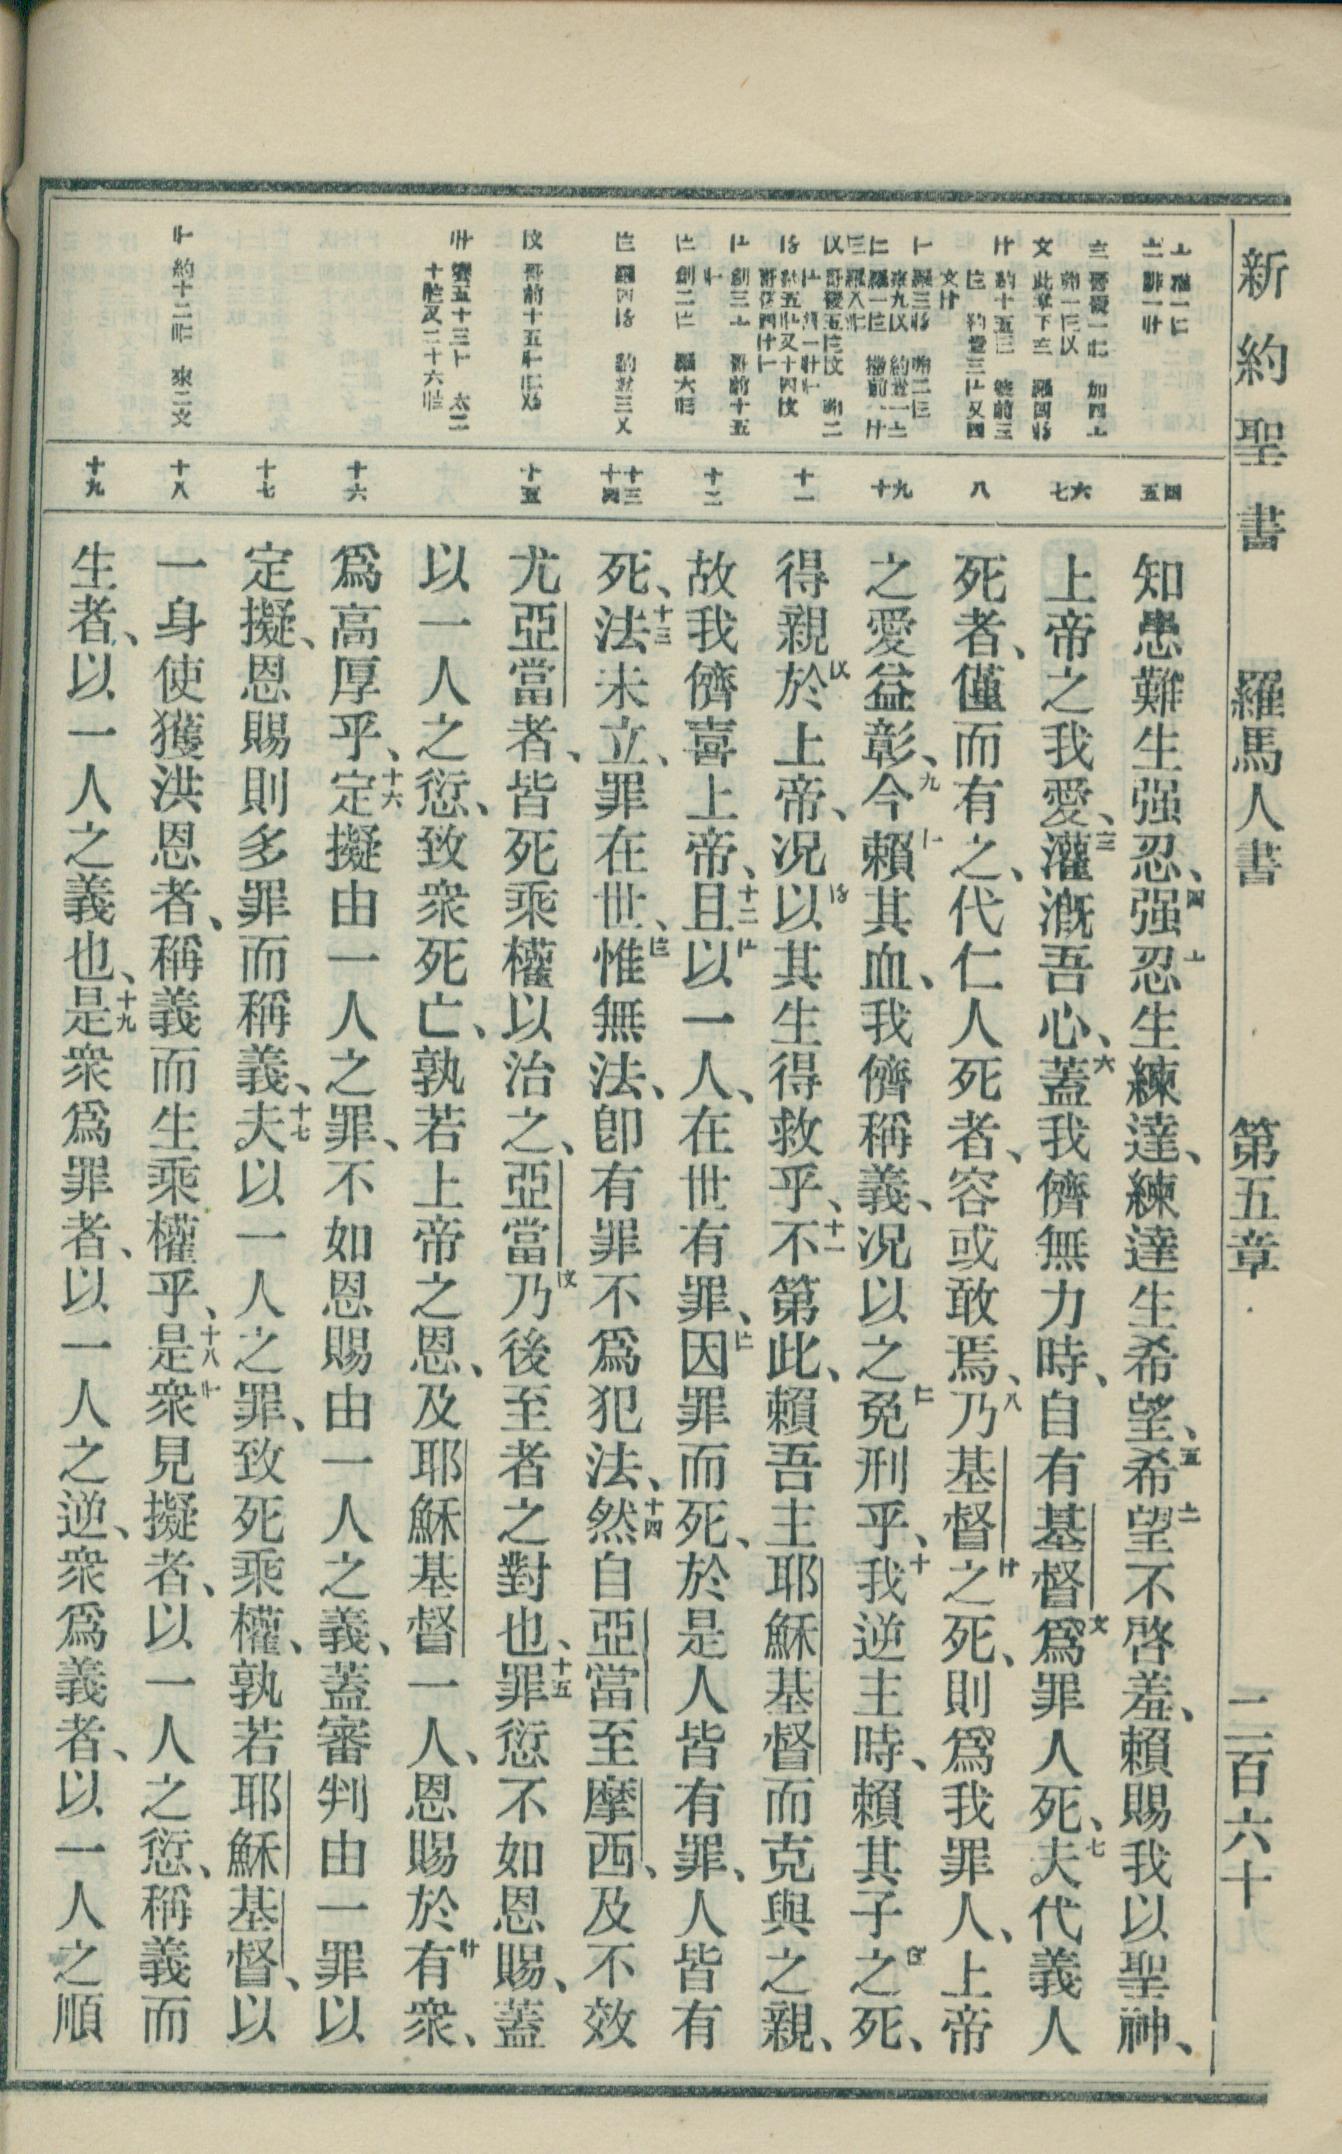 新約聖書 羅馬人書 第五章 二百六十
四 五 六 七 八 九 十 十一 十二 十三 十四 十五 十六 十七 十八 十九
知患難生强忍、四强忍生練達、練達生希望、五希望不啓羞、賴賜我以聖神、
上帝之我愛、灌漑吾心、六蓋我儕無力時、自有基督爲罪人死、七夫代義人
死者、僅而有之、代仁人死者、容或敢焉、八乃基督之死、則爲我罪人、上帝
之愛益彰、九今賴其血、我儕稱義、况以之免刑乎、十我逆主時、賴其子之死、
得親於上帝、况以其生得救乎、十一不第此、賴吾主耶穌基督而克與之親、
故我儕喜上帝、十二且以一人、在世有罪、因罪而死、於是人皆有罪、人皆有
死、十三法未立、罪在世、惟無法、卽有罪不爲犯法、十四然自亞當至摩西、及不效
尤亞當者、皆死乘權以治之、亞當乃後至者之對也、十五罪愆不如恩賜、蓋
以一人之愆、致衆死亡、孰若上帝之恩、及耶穌基督一人、恩賜於有衆、
爲高厚乎、十六定擬由一人之罪、不如恩賜由一人之義、蓋審判由一罪以
定擬、恩賜則多罪而稱義、十七夫以一人之罪、致死乘權、孰若耶穌基督、以
一身使獲洪恩者、稱義而生乘權乎、十八是衆見擬者、以一人之愆、稱義而
生者、以一人之義也、十九是衆爲罪者、以一人之逆、衆爲義者、以一人之順